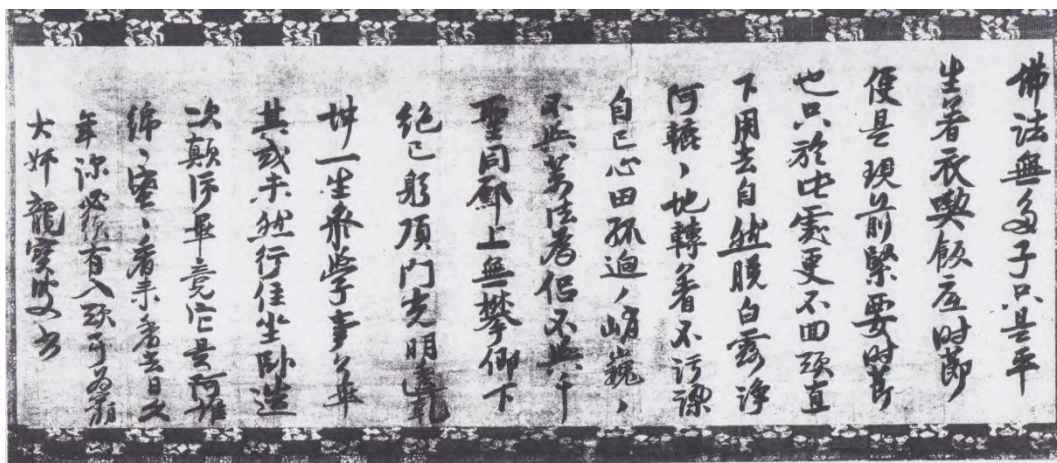 佛法無多子只是平
生著衣喫飯底时節
便是現前緊要时节
也只於此處更不回頭直
下用去自然脱白露淨
阿轆〻地轉著不污溁
自己心田孤逈〻峭巍〻
不與萬法為侶不與千
聖同躔上無攀仰下
絕己躬頂門光明透乾
坤一生參學事畢
其或未然行住坐卧造
次顛沛畢竟它是阿誰
綿〻密〻看来看去日久
年深必須有入頭可為
大奸 龍寶叟书